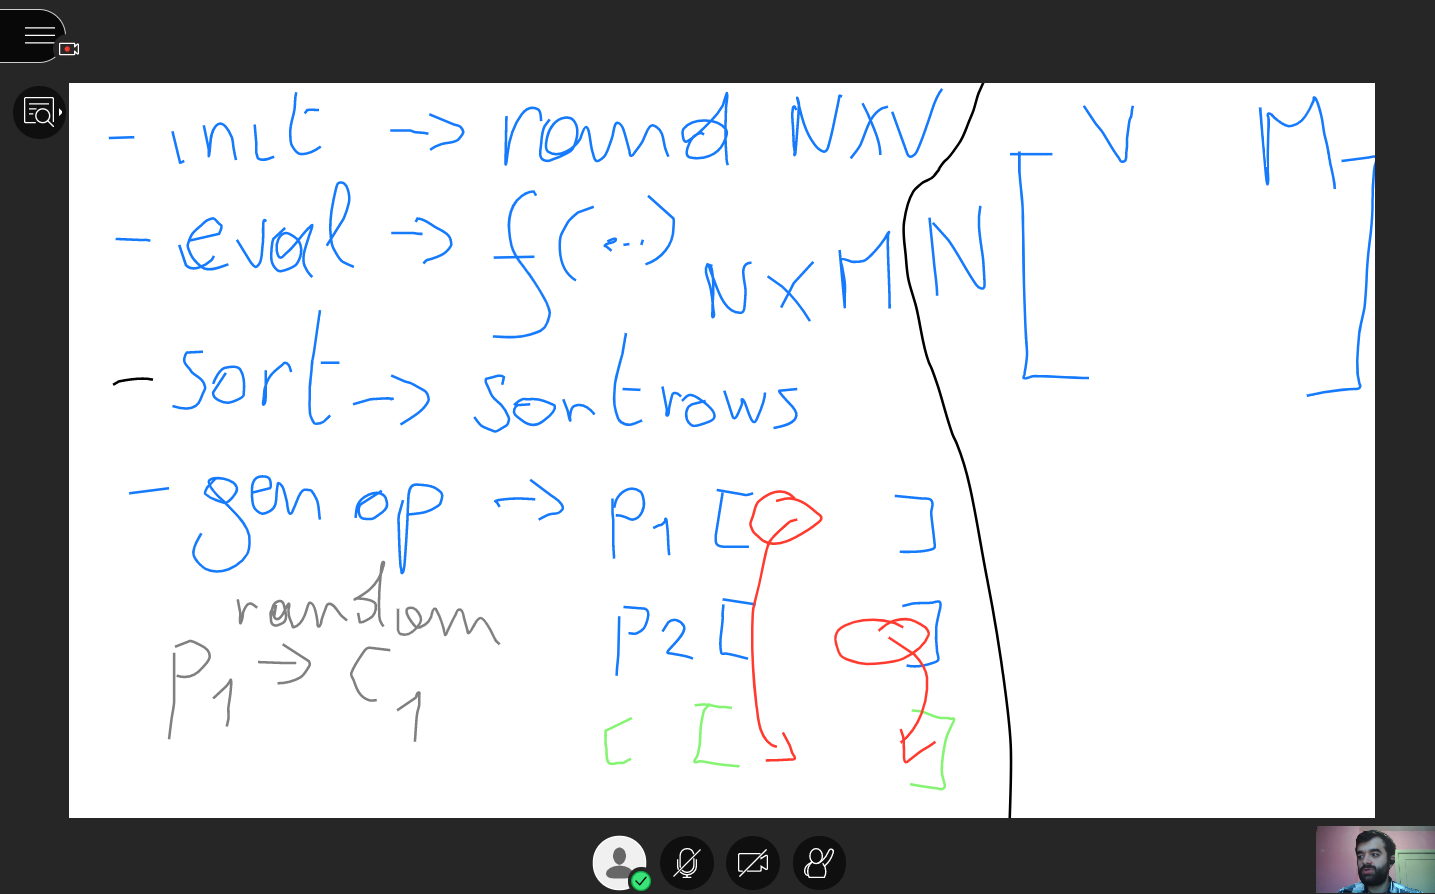 - init → rand NXV
- eval → f(...) NXM
- sort → sortrows
- gen op → P1 [ ]
P2 [ ]
C [ ]
random
P1 → C1
V M
N [ ]